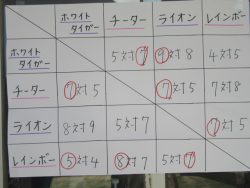 ホワイトタイガー チーター ライオン レインボー
ホワイトタイガー 5対⑦ ⑨対8 4対5
チーター ⑦対5 ⑦対5 7対8
ライオン 8対9 5対7 ⑦対5
レインボー ⑤対4 ⑧対7 5対⑦